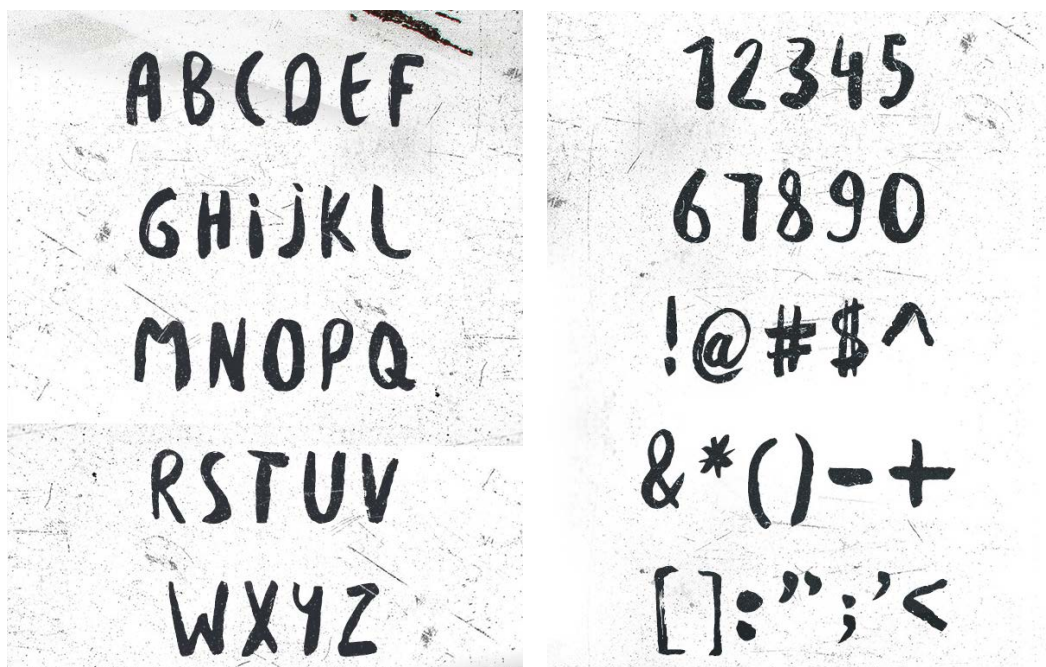 ABCDEF
GHijKL
MNOPQ
RSTUV
WXYZ
12345
67890
!@#$^
&*()-+
[]:”;’<